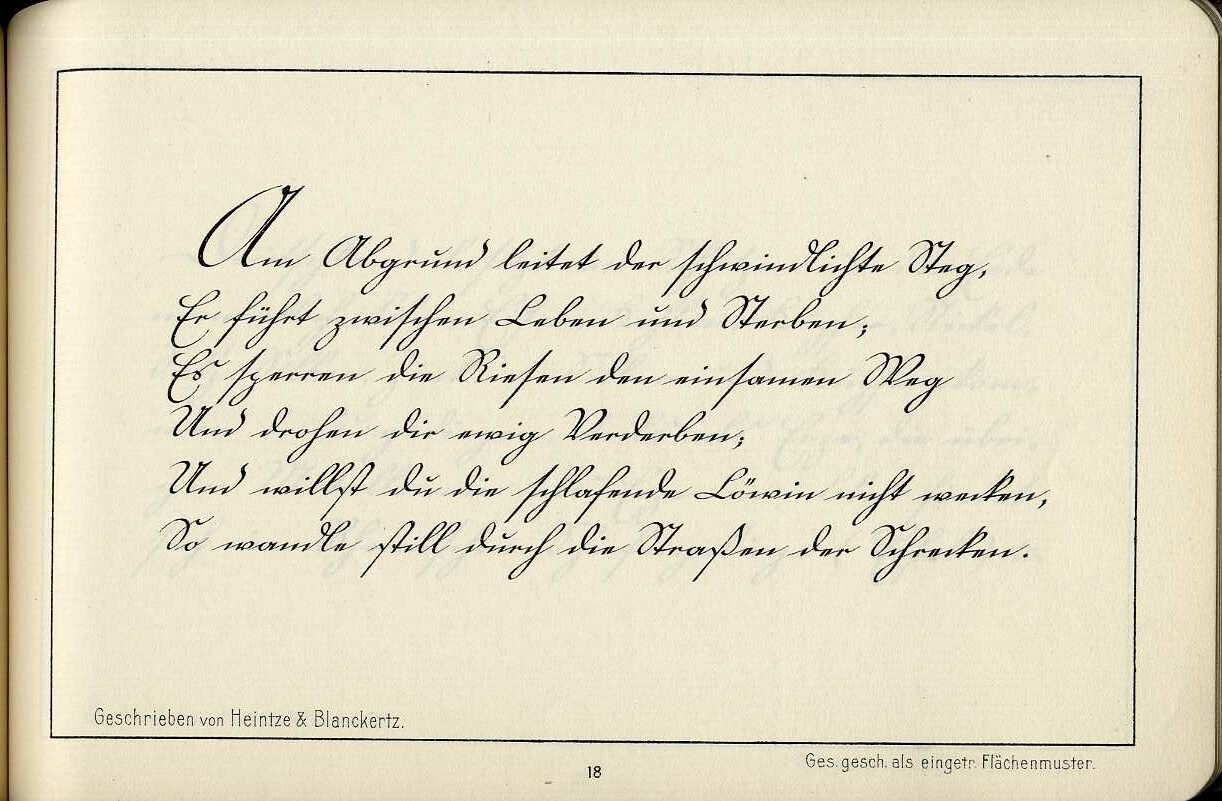 Am Abgrund leitet der schwindlichte Steg,
Er führt zwischen Leben und Sterben;
Es sperren die Riesen den einsamen Weg
Und drohen dir ewig Verderben;
Und willst du die schlafende Löwin nicht wecken,
So wandle still durch die Straßen der Schrecken.
Geschrieben von Heintze & Blanckertz.
Ges. gesch. als eingetr. Flächenmuster.
18